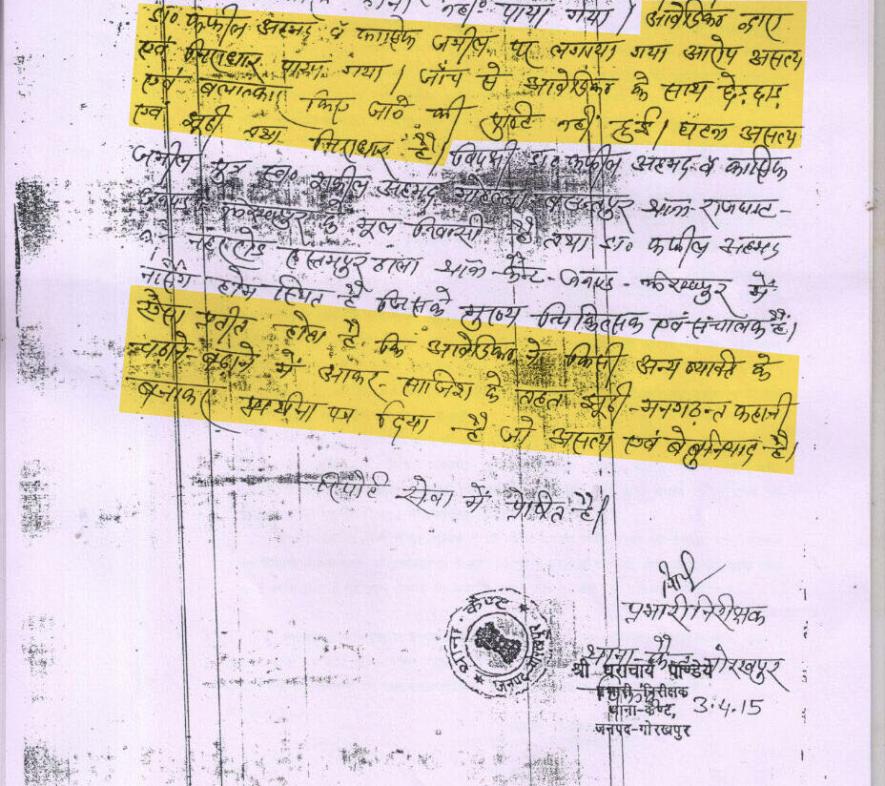 नहीं पाया गया। आवेदिका द्वारा
डा० कफील अहमद व काशिफ जमील पर लगाया गया आरोप असत्य
एवं निराधार पाया गया। जाँच से आवेदिका के साथ छेड़छाड़
एवं बलात्कार किए जाने की पुष्टि नहीं हुई। घटना असत्य
एवं झूठी तथा निराधार है। विपक्षी डा० कफील अहमद व काशिफ
जमील पुत्र स्व० शकील अहमद बसन्तपुर थाना-राजघाट-
के मूल निवासी है तथा डा० कफील अहमद
रुस्तमपुर ढाला थाना-कैन्ट-जनपद-गोरखपुर में
नर्सिंग होम स्थित है जिसके मुख्य चिकित्सक एवं संचालक हैं।
ऐसा प्रतीत होता है कि आवेदिका ने किसी अन्य व्यक्ति के
बहाने में आकर साजिश के तहत झूठी-मनगढ़न्त कहानी
बनाकर प्रार्थना पत्र दिया है जो असत्य एवं बेबुनियाद है।
रिपोर्ट सेवा में प्रेषित है।
प्रभारी निरीक्षक
थाना-कैन्ट गोरखपुर
श्री पाण्डेय
प्रभारी निरीक्षक
थाना-कैण्ट, 3.4.15
जनपद-गोरखपुर
थाना कैण्ट
जनपद गोरखपुर